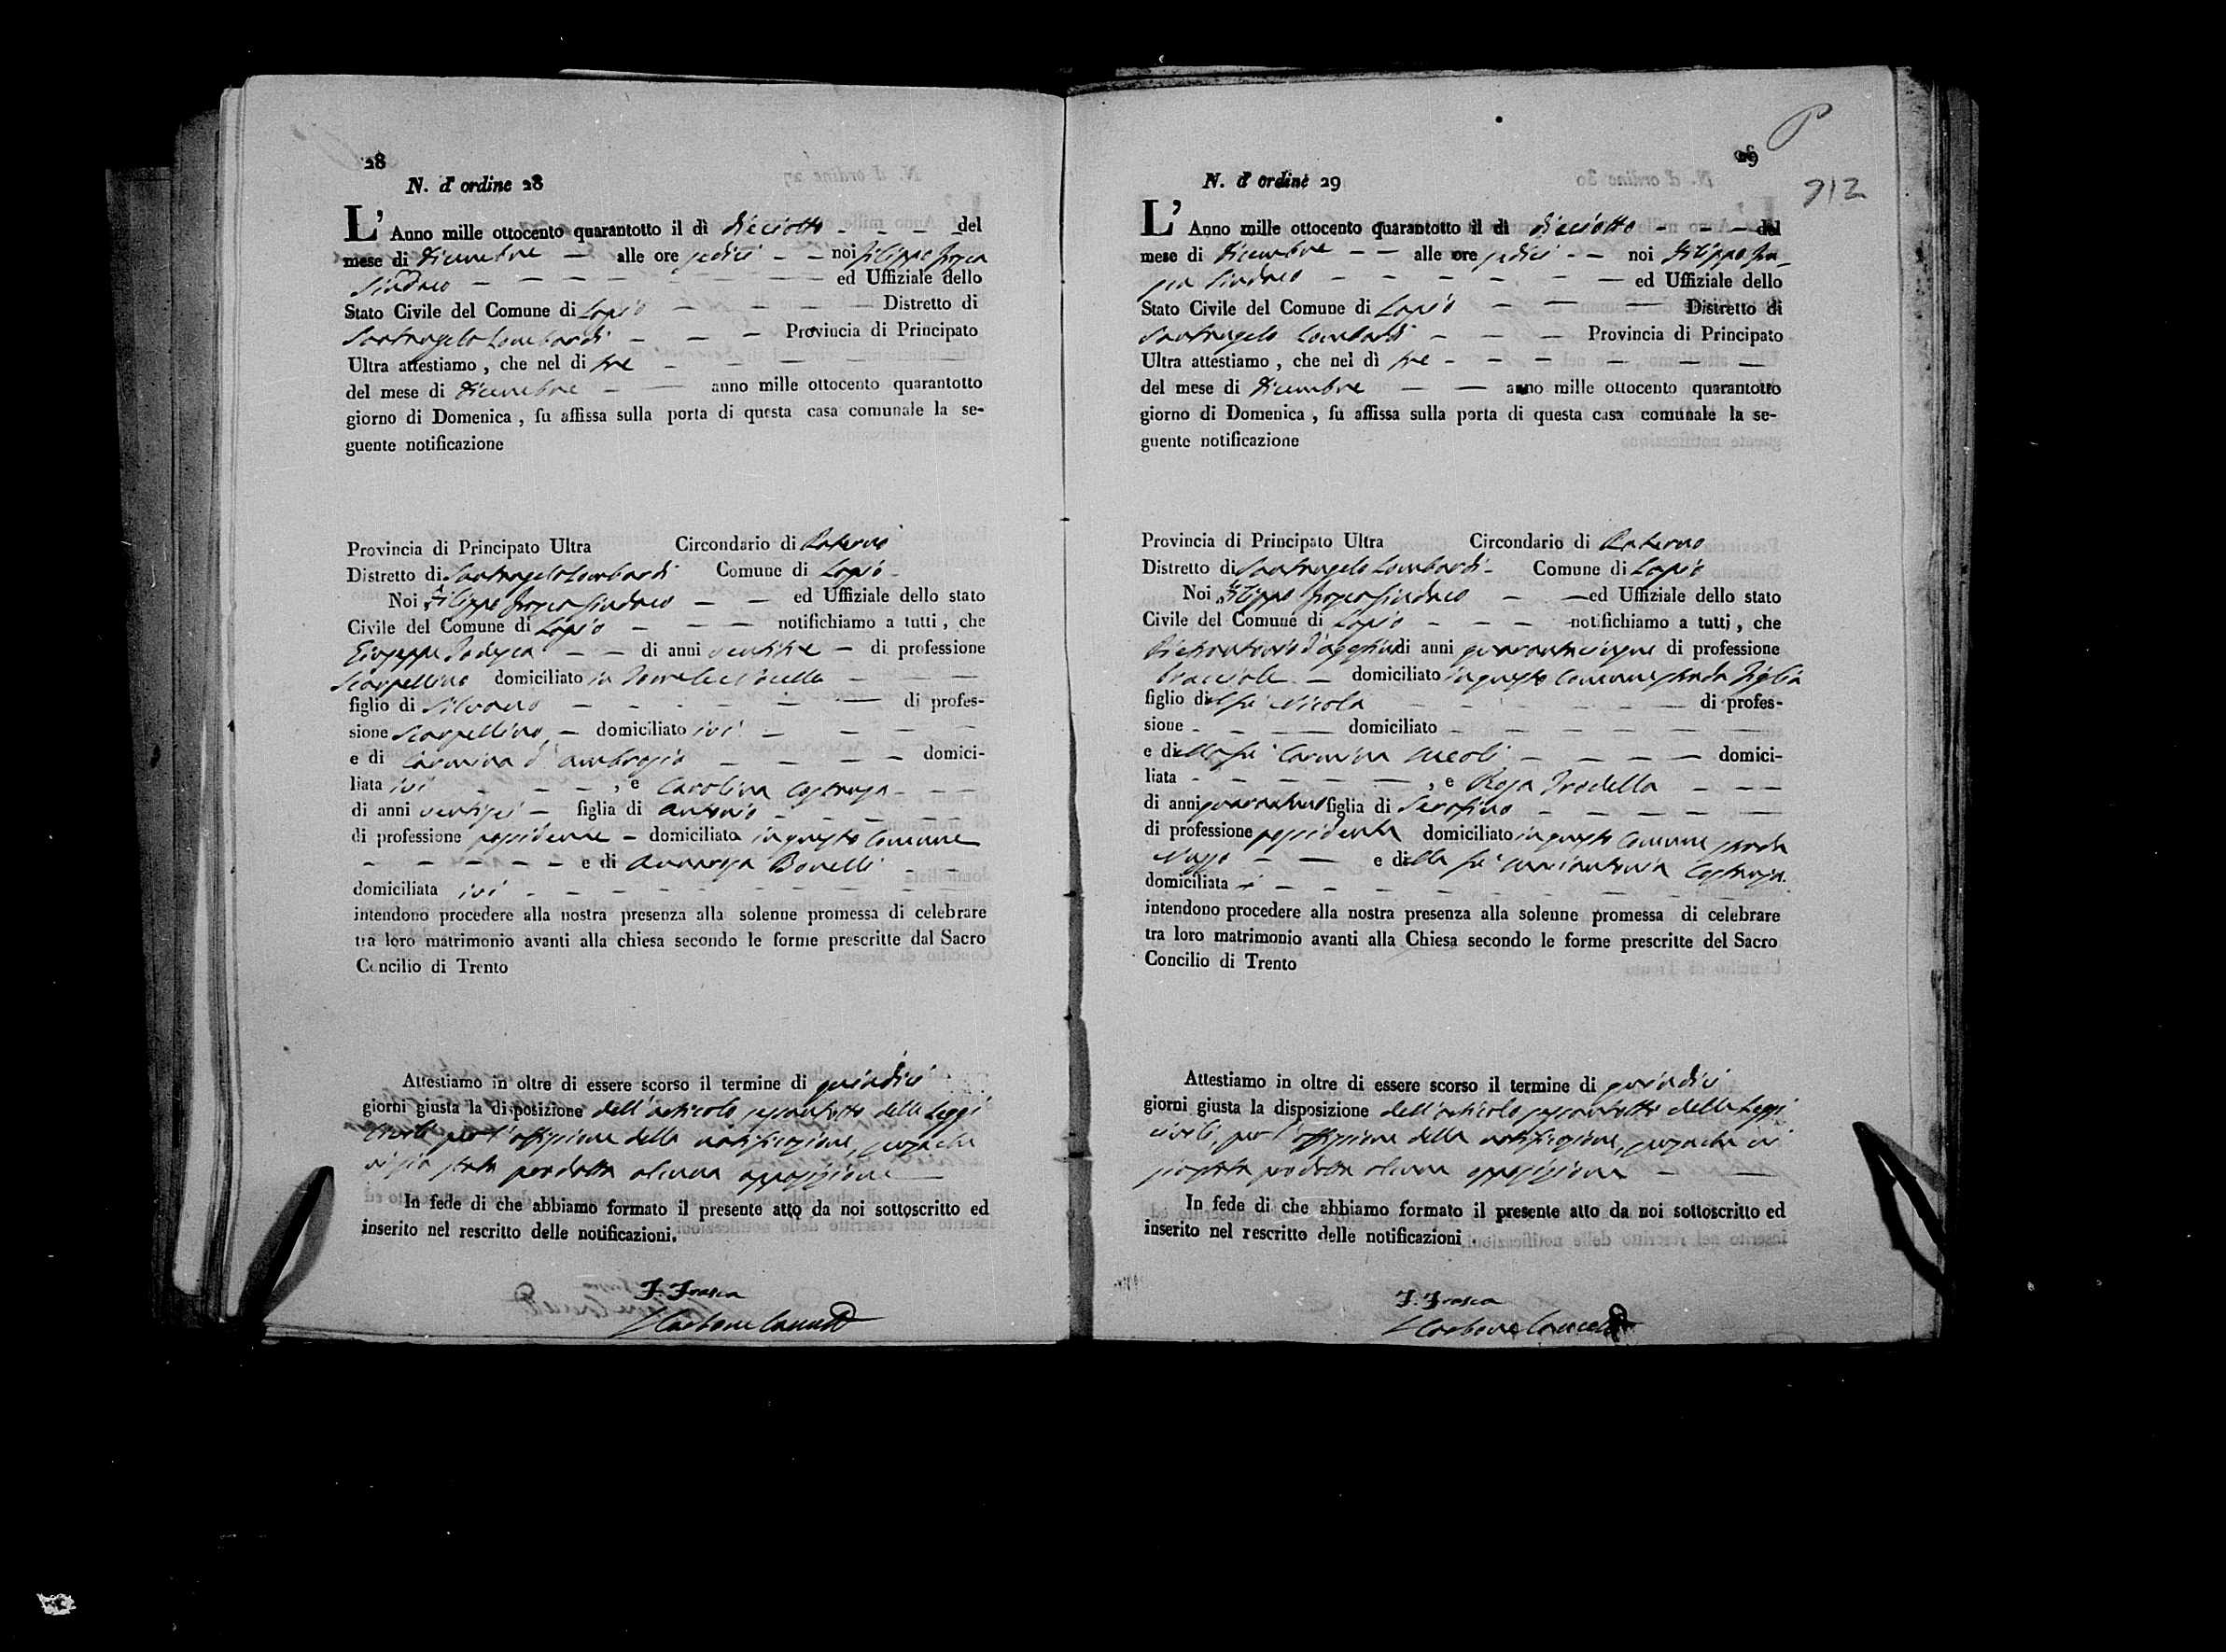 28
N. d' ordine 28
L' Anno mille ottocento quarantotto il dì dieciotto - - - del
mese di Dicembre - alle ore sedici - - noi Filippo Frasca
Sindaco - - - - - - - ed Uffiziale dello
Stato Civile del Comune di Lapio - - - - Distretto di
Santangelo Lombardi - - - Provincia di Principato
Ultra attestiamo , che nel dì tre - - - - -
del mese di Dicembre - - anno mille ottocento quarantotto
giorno di Domenica , fu affissa sulla porta di questa casa comunale la se-
guente notificazione
Provincia di Principato Ultra Circondario di Paterno
Distretto di Santangelo Lombardi Comune di Lapio -
Noi Filippo Frasca Sindaco - - ed Uffiziale dello stato
Civile del Comune di Lapio - - - notifichiamo a tutti , che
Giuseppe - - di anni ventitre - di professione
Scarpellino domiciliato in - - -
figlio di Silvano - - - - - - di profes-
sione Scarpellino - domiciliato ivi - - - -
e di Carmina d'Ambrosio - - - - domici-
liata ivi - - - - , e Carolina - - -
di anni ventisei - figlia di Antonio - - - - -
di professione possidente - domiciliata in questo Comune
- - - - - e di Annarosa Bonelli - -
domiciliata ivi - - - - - - - - - - -
intendono procedere alla nostra presenza alla solenne promessa di celebrare
tra loro matrimonio avanti alla chiesa secondo le forme prescritte dal Sacro
Concilio di Trento
Attestiamo in oltre di essere scorso il termine di quindici
giorni giusta la disposizione dell'articolo sessantotto delle Leggi
Civili per l'affissione della notificazione, senza che
vi sia stata prodotta alcuna opposizione
In fede di che abbiamo formato il presente atto da noi sottoscritto ed
inserito nel rescritto delle notificazioni.
F. Frasca
Carbone
29
912
N. d' ordine 29
L' Anno mille ottocento quarantotto il dì dieciotto - - - del
mese di Dicembre - - alle ore sedici - - noi Filippo Fra-
sca Sindaco - - - - - - ed Uffiziale dello
Stato Civile del Comune di Lapio - - - Distretto di
Santangelo Lombardi - - - Provincia di Principato
Ultra attestiamo , che nel dì tre - - - - - -
del mese di Dicembre - - anno mille ottocento quarantotto
giorno di Domenica , fu affissa sulla porta di questa casa comunale la se-
guente notificazione
Provincia di Principato Ultra Circondario di Paterno
Distretto di Santangelo Lombardi - Comune di Lapio
Noi Filippo Frasca Sindaco - - ed Uffiziale dello stato
Civile del Comune di Lapio - - - notifichiamo a tutti , che
di anni quarantacinque di professione
bracciale - domiciliato in questo Comune strada
figlio del fu Nicola - - - - - - di profes-
sione - - - - domiciliato - - - - - -
e della fu Carmina Meoli - - - - domici-
liata - - - - - - , e Rosa - - -
di anni figlia di Serafino - - - - -
di professione possidente domiciliato in questo Comune strada
- - e della fu Mariantonia
domiciliata - - - - - - - - - -
intendono procedere alla nostra presenza alla solenne promessa di celebrare
tra loro matrimonio avanti alla Chiesa secondo le forme prescritte del Sacro
Concilio di Trento
Attestiamo in oltre di essere scorso il termine di quindici
giorni giusta la disposizione dell'articolo sessantotto delle Leggi
civili, per l'affissione della notificazione, senza che vi
sia stata prodotta alcuna opposizione - -
In fede di che abbiamo formato il presente atto da noi sottoscritto ed
inserito nel rescritto delle notificazioni.
F. Frasca
Carbone